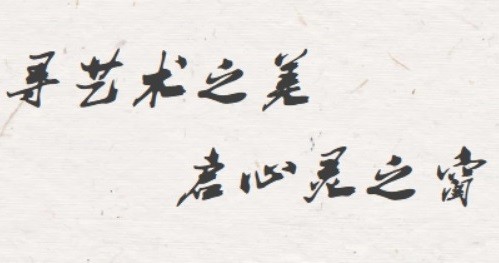 寻艺术之美
启心灵之窗